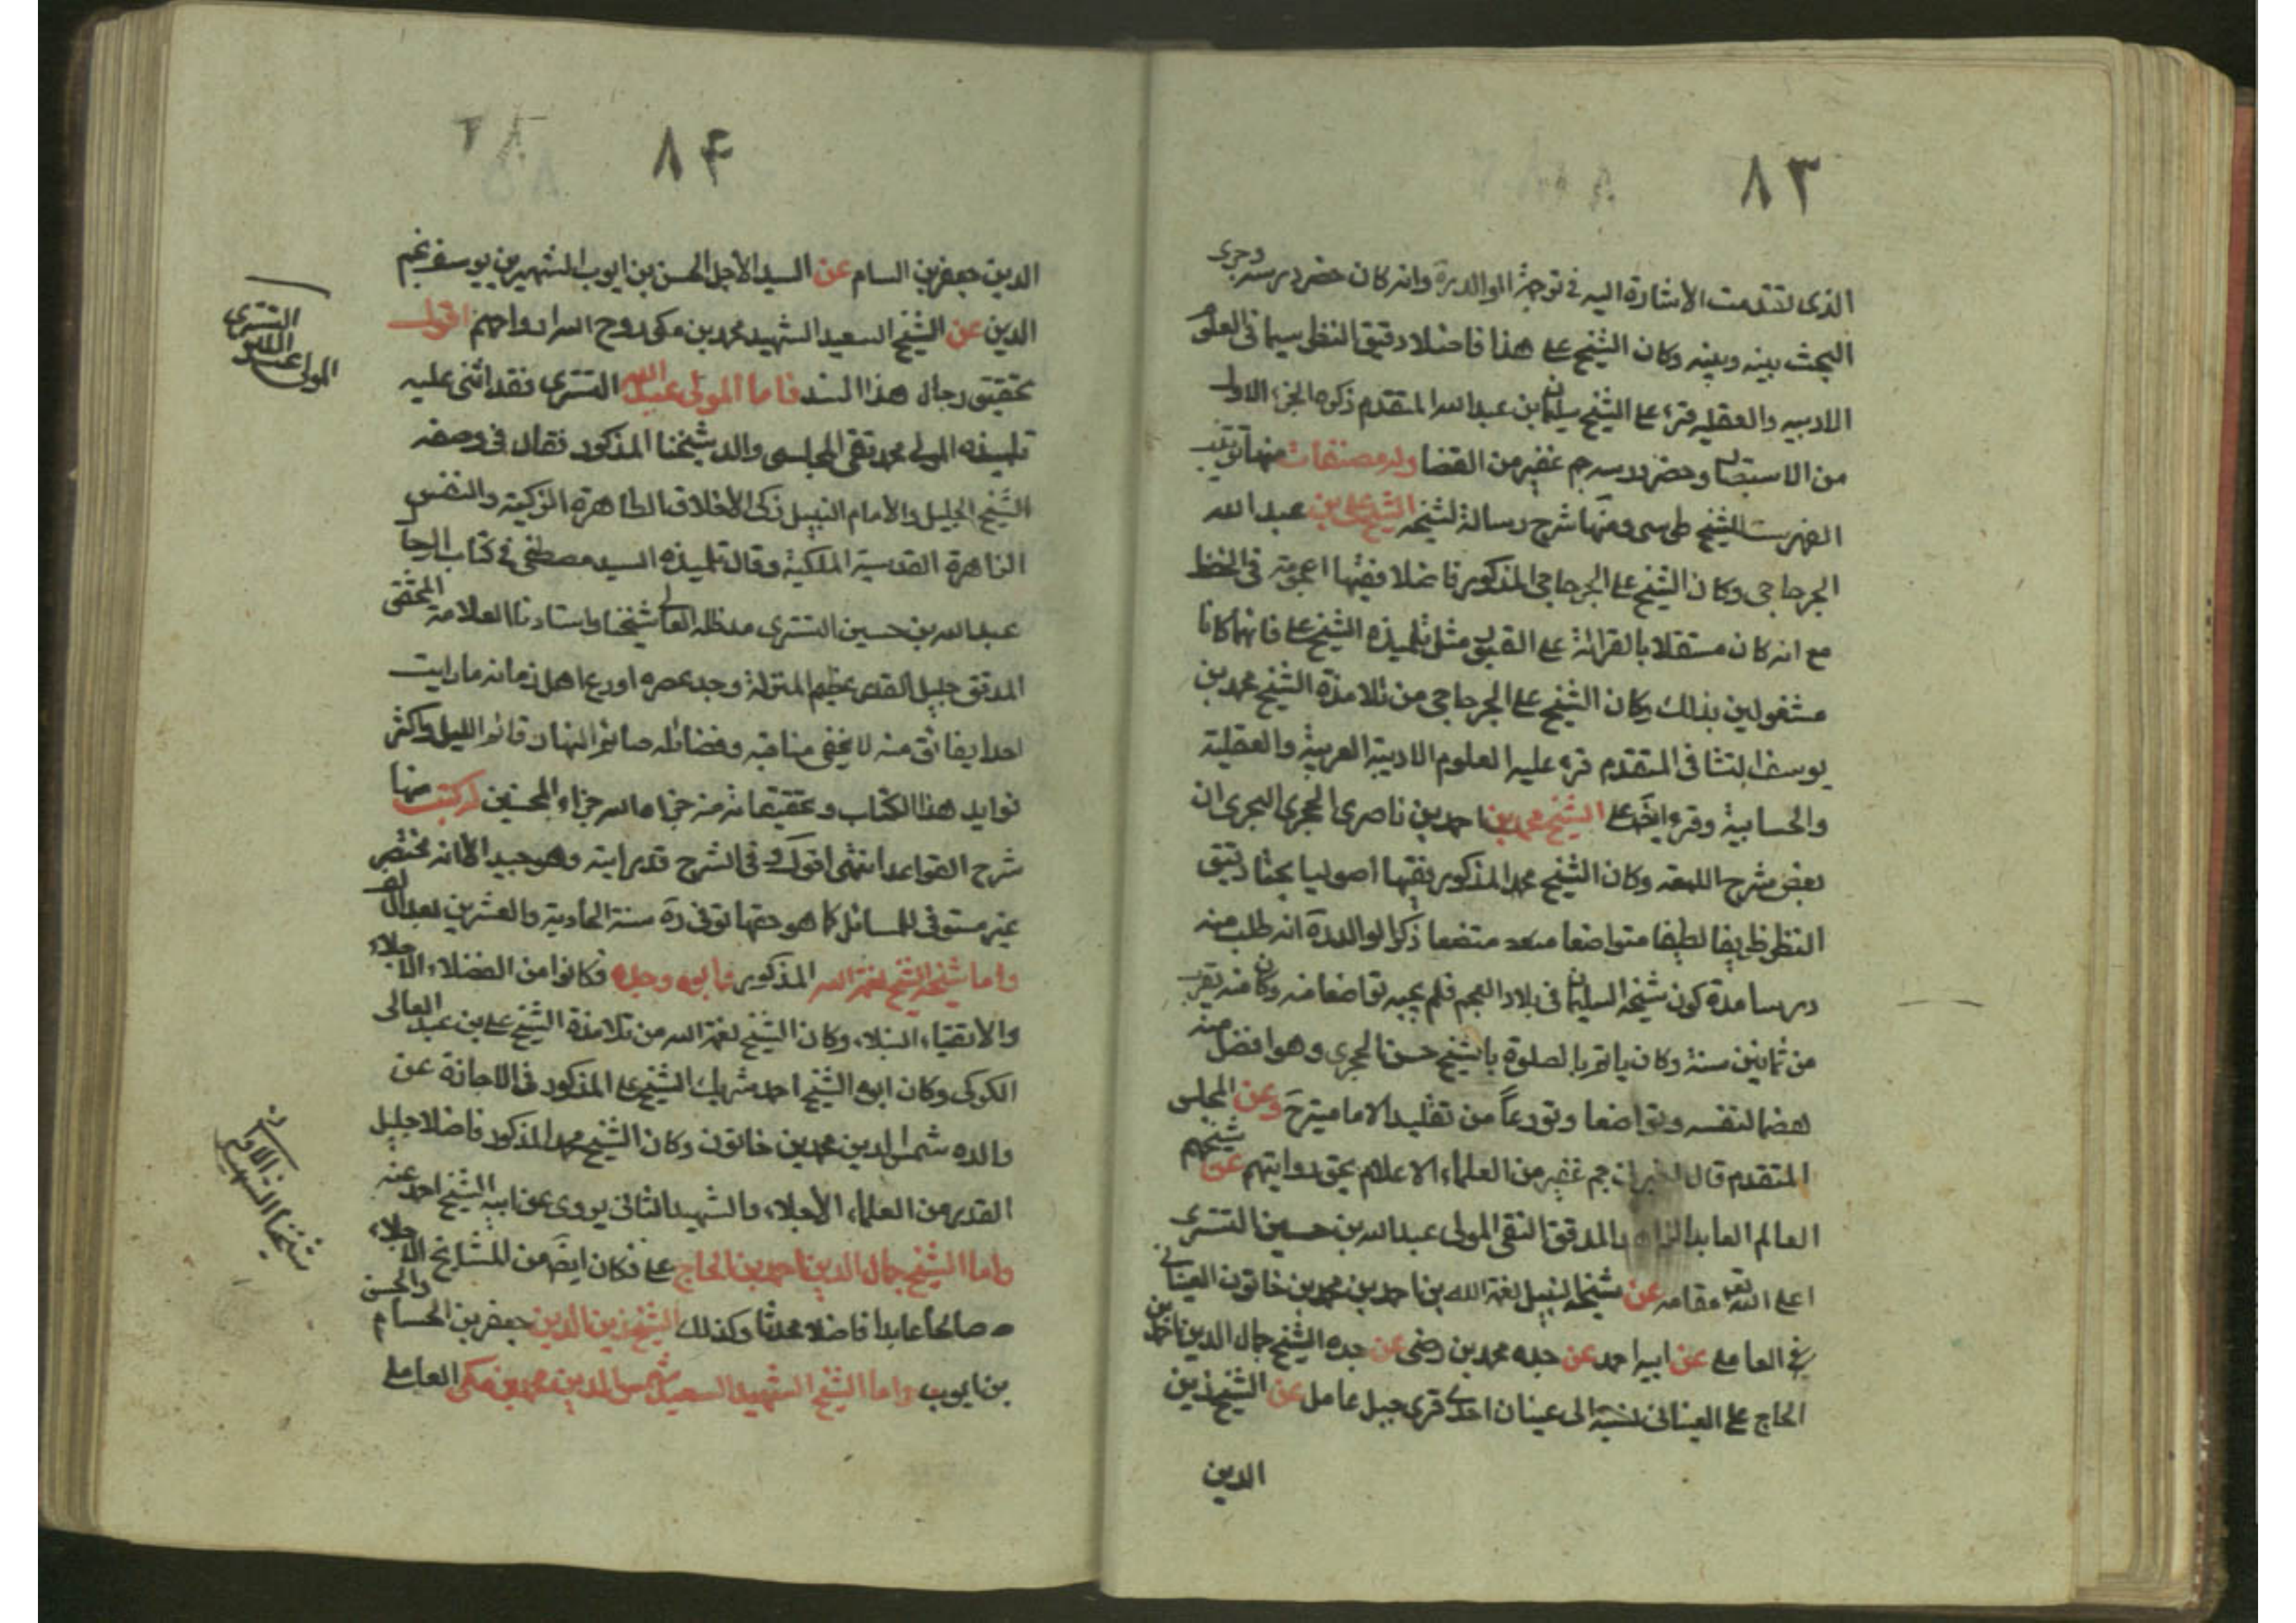 ٨٣
الذى تقدمت الاشارة اليه فى ترجمة الوالد ره وانه كان حضر درسه وجرى
البحث بينه وبينه وكان الشيخ على هذا فاضلا دقيق النظر سيما فى العلوم
الادبيه والعقليه قرء على الشيخ سليمان بن عبد الله المتقدم ذكره الجزء الاول
من الاستبصار وحضر درسه جم غفير من الفضلا وله مصنفات منها ترتيب
الفهرست للشيخ طوسى ومنها شرح رسالة لشيخه الشيخ على بن عبد الله
وكان الشيخ على المذكور فاضلا فقيها اعجوبة فى الحفظ
مع انه كان مستقلا بالقرائة على مثل تلميذه الشيخ على فانهما كانا
مشغولين بذلك وكان الشيخ على من تلامذة الشيخ محمد بن
يوسف المتقدم قرء عليه العلوم الادبية العربية والعقلية
والحسابية وقرء ايضا على الشيخ محمد بن احمد بن ناصر الحجرى البحرانى
بعض شرح اللمعه وكان الشيخ محمد المذكور فقيها اصوليا بحثا دقيق
النظر ظريفا لطيفا متواضعا ذكر الوالد ره انه طلب منه
درسا مدة كون شيخه السليمان فى بلاد العجم فلم يجبه تواضعا منه وكان منه يقرب
من ثمانين سنة وكان ياتم بالصلوة بالشيخ حسن الحجرى وهو افضل منه
هضما لنفسه وتواضعا وتورعا من تقليد الامامية ح وعن المجلسى
المتقدم قال اخبرنى جم غفير من العلماء الاعلام بحق روايتهم عن شيخهم
العالم العابد الزاهد المدقق التقى المولى عبد الله بن حسين التسترى
اعلى الله تعه مقامه عن شيخه النبيل نعمة الله بن احمد بن محمد بن خاتون العيناثى
العاملى عن ابيه احمد عن جده محمد بن رضى عن جده الشيخ جمال الدين احمد بن
الحاج على العيناثى نسبة الى عيناث احدى قرى جبل عامل عن الشيخ زين
الدين
٨۴
الدين جعفر بن السام عن السيد الاجل الحسن بن ايوب الشهير بن يوسف نجم
الدين عن الشيخ السعيد الشهيد محمد بن مكى روح الله ارواحهم اقول
تحقيق رجال هذا السند فاما المولى عبد الله التسترى فقد اثنى عليه
تلميذه المولى محمد تقى المجلسى والد شيخنا المذكور فقال فى وصفه
الشيخ الجليل والامام النبيل زكى الاخلاق الطاهرة الزكية والنفس
الزاهرة القدسية الملكية وقال تلميذه السيد مصطفى فى كتاب الرجا
عبد الله بن حسين التسترى مد ظله العالى شيخنا واستادنا العلامة المحقق
المدقق جليل القدر عظيم المنزلة وحيد عصره اورع اهل زمانه ما رايت
احدا يفاثق منه لا يخفى مناقبه وفضائله صائم النهار قائم الليل واكثر
فوايد هذا الكتاب وتحقيقاته منه جزاه الله جزاء المحسنين له كتب منها
شرح القواعد انتهى اقول فى الشرح قد رايته وهو جيد الا انه مختصر
غير مستوفى للمسائل كما هو حقها توفى ره سنة الحادية والعشرين بعد الالف
واما شيخه الشيخ نعمة الله المذكور وابوه وجده فكانوا من الفضلاء الاجلاء
والاتقياء النبلاء وكان الشيخ نعمة الله من تلامذة الشيخ على بن عبد العالى
الكركى وكان ابوه الشيخ احمد شريك الشيخ على المذكور فى الاجازة عن
والده شمس الدين محمد بن خاتون وكان الشيخ محمد المذكور فاضلا جليل
القدر من العلماء الاجلاء والشهيد الثانى يروى عن ابيه الشيخ احمد عنه
واما الشيخ جمال الدين احمد بن الحاج على فكان ايضا من المشايخ الاجلاء
صالحا عابدا فاضلا محدثا وكذلك الشيخ زين الدين جعفر بن الحسام والحسن
بن ايوب واما الشيخ الشهيد السعيد شمس الدين محمد بن مكى العاملى
المولى عبد الله التسترى
شيخنا الشهيد الاول